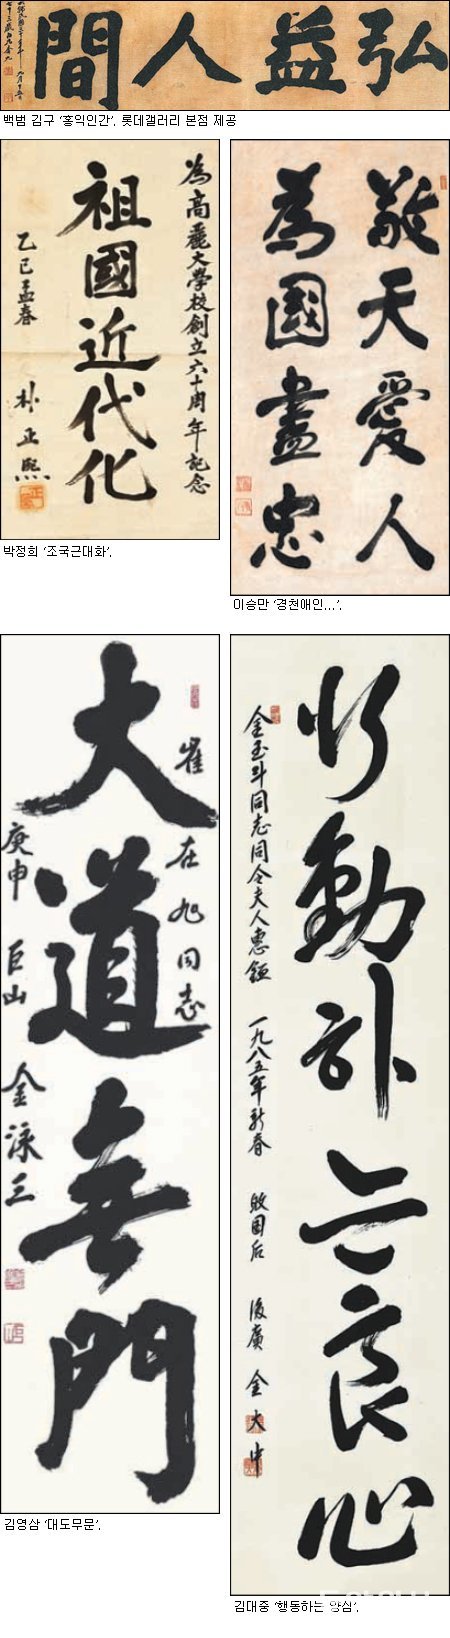 弘益人間
七十三歲白凡金九
백범 김구 ‘홍익인간’. 롯데갤러리 본점 제공
為高麗大學校創立六十周年記念
祖國近代化
乙巳孟春 朴正熙
박정희 ‘조국근대화’.
敬天愛人
為國盡忠
이승만 ‘경천애인…’.
崔在旭同志
大道無門
庚申 巨山 金泳三
김영삼 ‘대도무문’.
行動하는良心
金玉斗同志同令夫人惠 一九八五年新春 後廣 金大中
김대중 ‘행동하는 양심’.